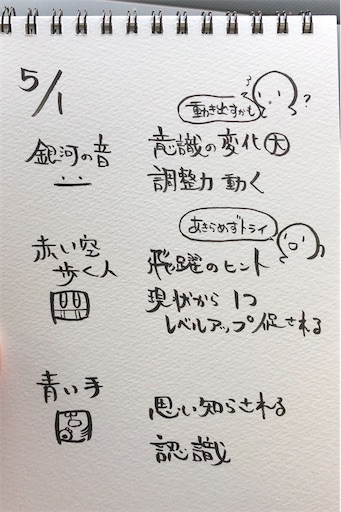 5/1
動き出すかも
? ?
銀河の音
意識の変化 大
調整力 動く
あきらめずトライ
赤い空
歩く人
飛躍のヒント
現状から 1つ
レベルアップ促される
青い手
思い知らされる
認識